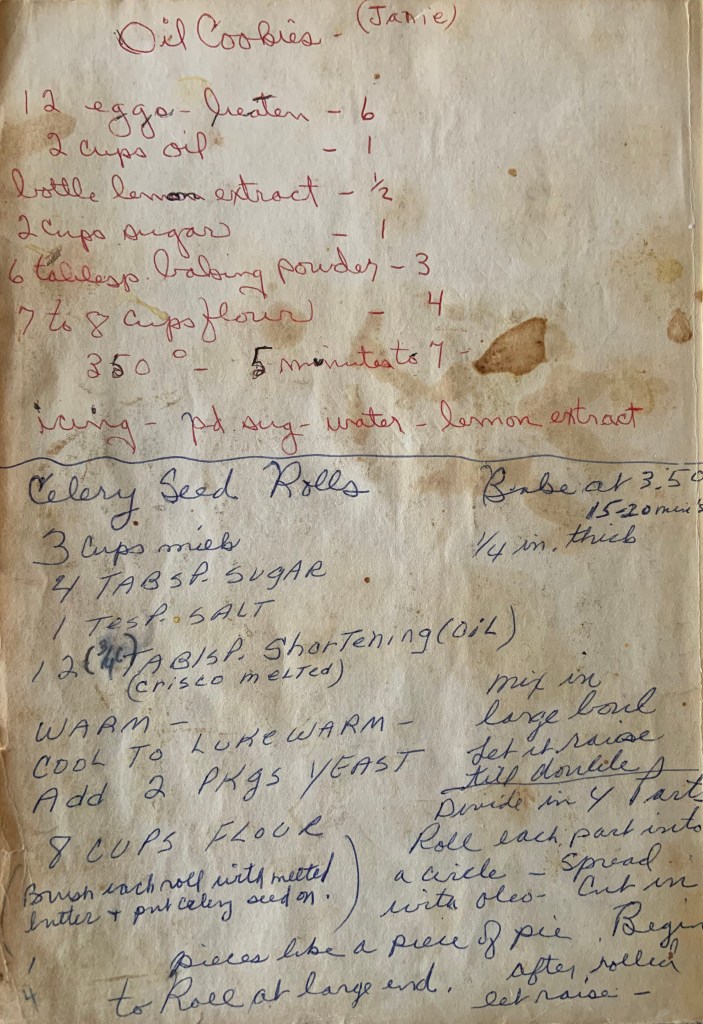 Oil Cookies - (Janie)
12 eggs - beaten - 6
2 cups oil - 1
bottle lemon extract - ½
2 cups sugar - 1
6 tablesp. baking powder - 3
7 to 8 cups flour - 4
350° - 5 minutes to 7 -
icing - pd. sug - water - lemon extract
Celery Seed Rolls
Bake at 3.50
15-20 min's
¼ in. thick
3 cups milk
4 TABSP. SUGAR
1 TESP. SALT
12 (3/4C) TABlSP. Shortening (OiL)
(CRISCO MELTED)
WARM -
COOL TO LUKEWARM -
Add 2 PKGS YEAST
8 CUPS FLOUR
(Brush each roll with melted
butter + put celery seed on.)
mix in
large bowl
Let it raise
till double
Divide in 4 Parts
Roll each part into
a circle - spread
with oleo - Cut in
pieces like a piece of pie. Begin
to Roll at large end. after rolled
let raise -
1
4